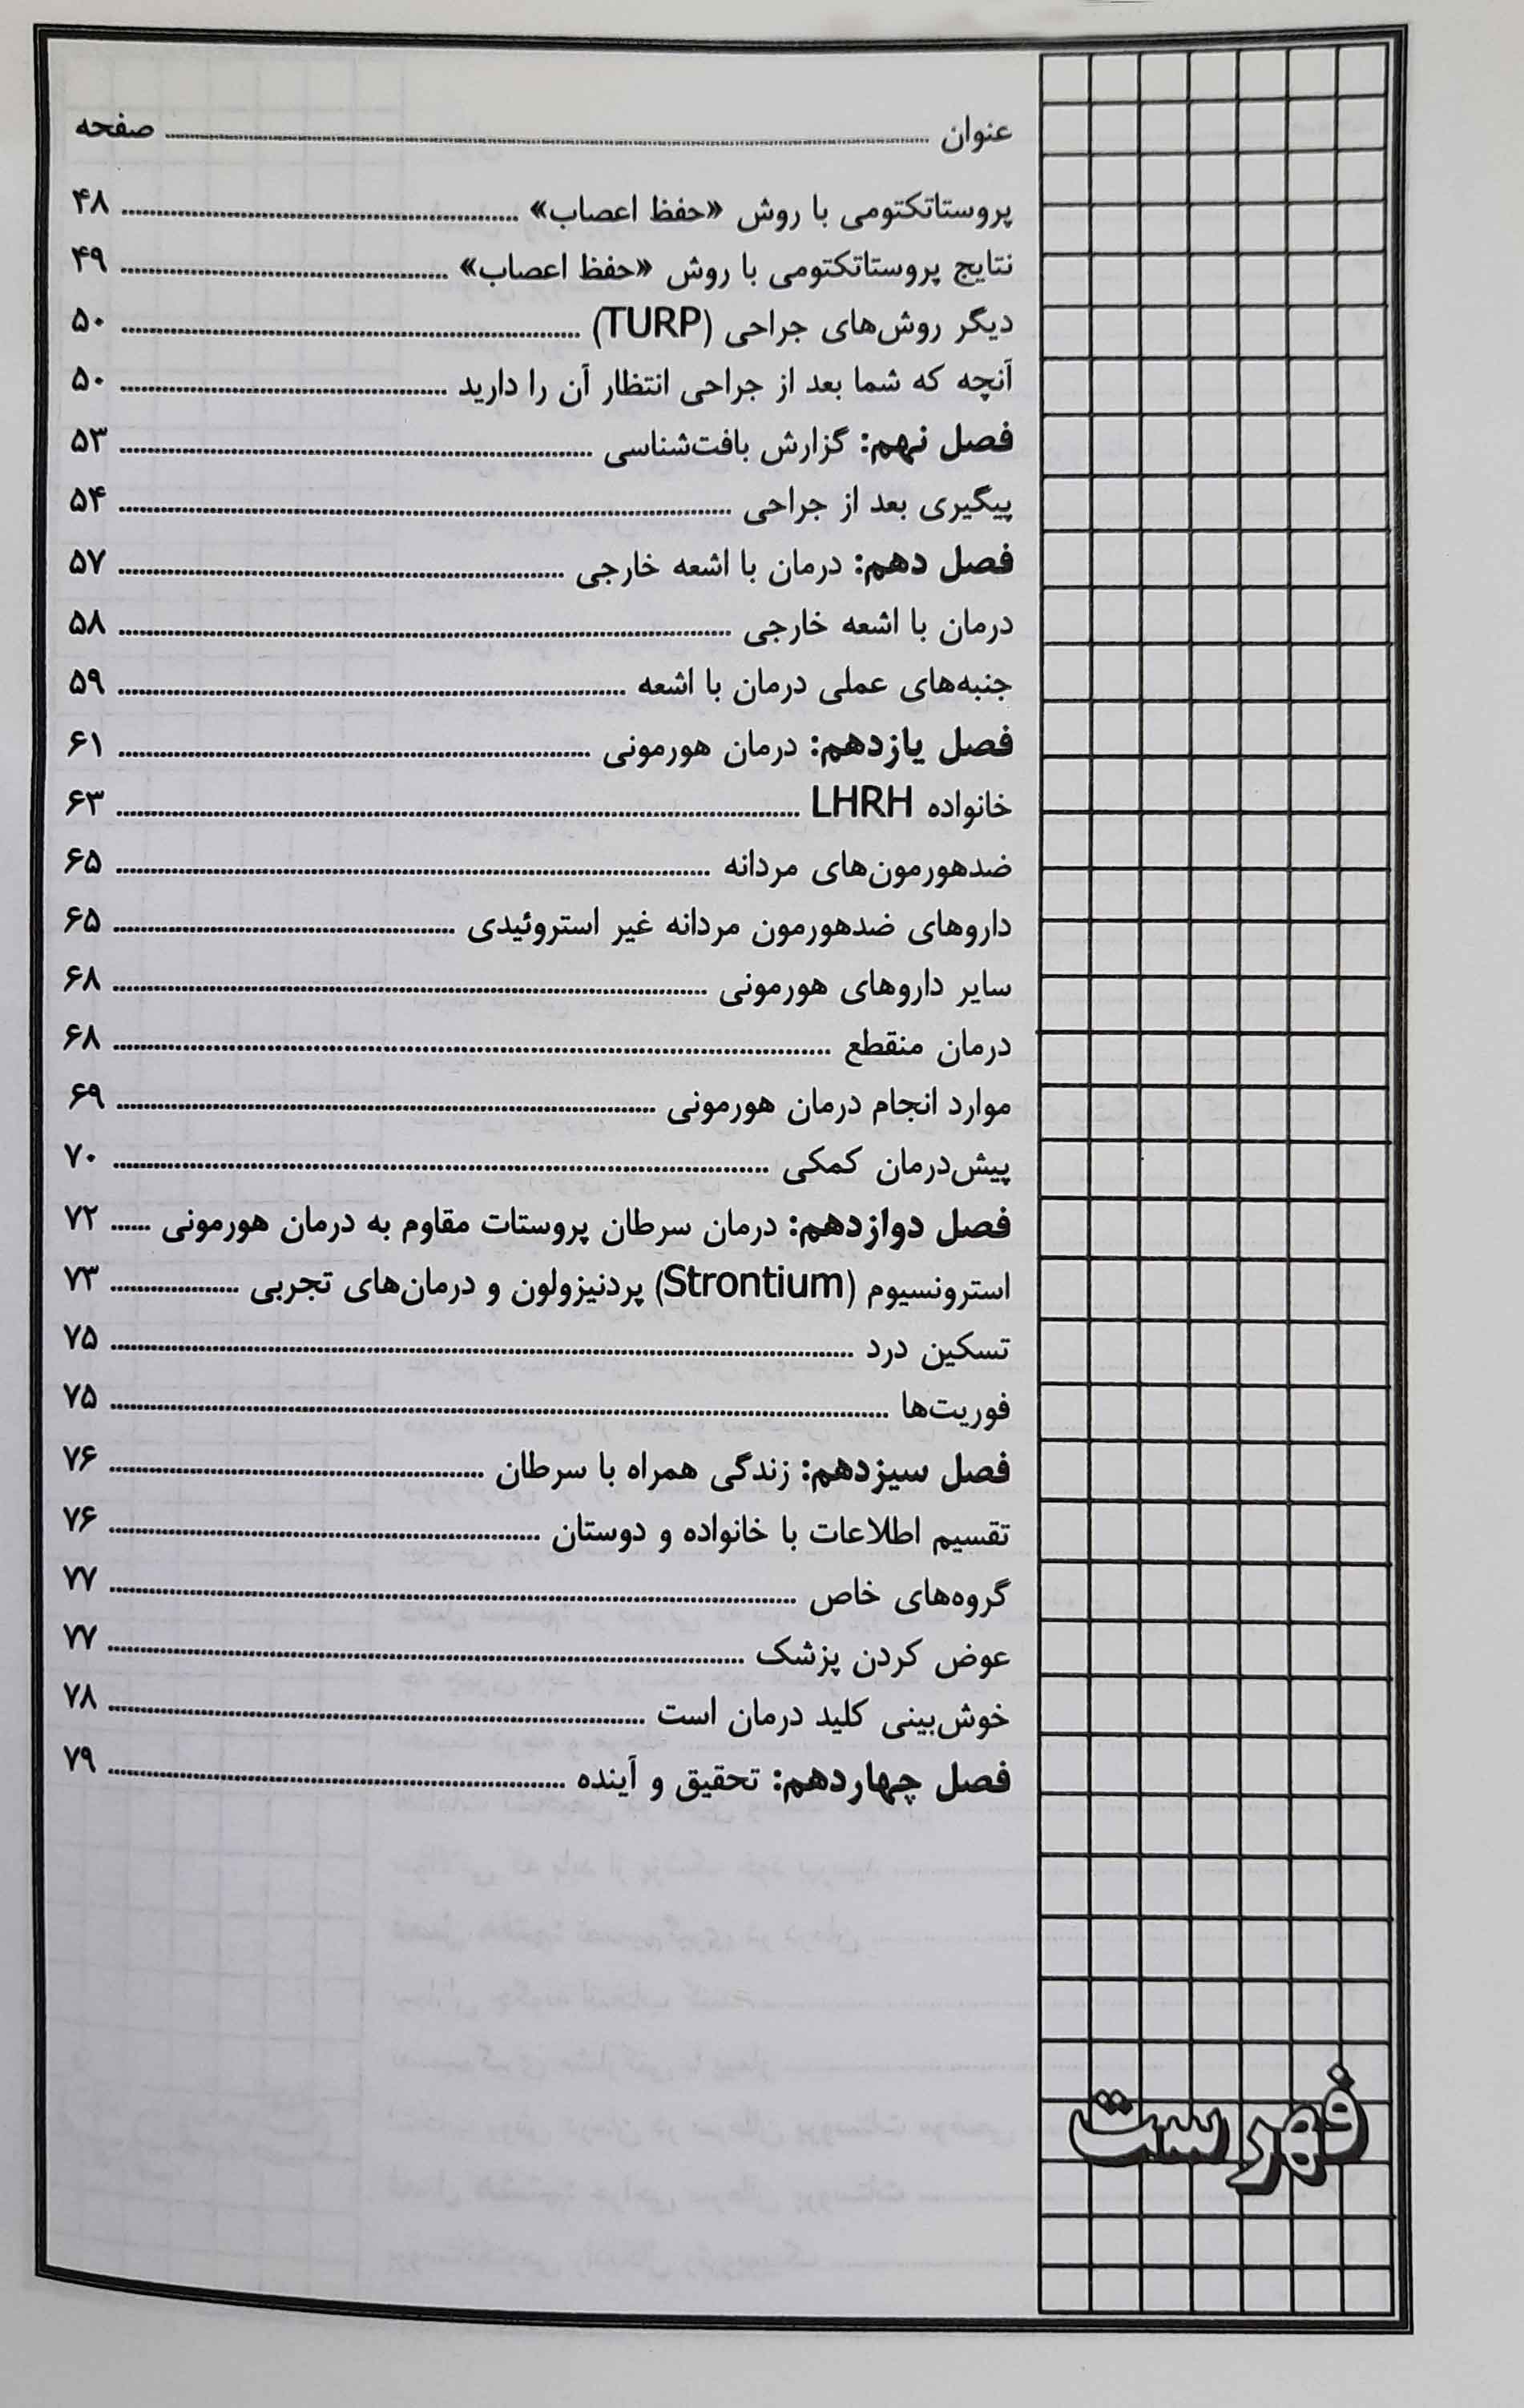 عنوان ........ صفحه
پروستاتکتومی با روش «حفظ اعصاب» ........ ۴۸
نتایج پروستاتکتومی با روش «حفظ اعصاب» ........ ۴۹
دیگر روش‌های جراحی (TURP) ........ ۵۰
آنچه که شما بعد از جراحی انتظار آن را دارید ........ ۵۰
فصل نهم: گزارش بافت‌شناسی ........ ۵۳
پیگیری بعد از جراحی ........ ۵۴
فصل دهم: درمان با اشعه خارجی ........ ۵۷
درمان با اشعه خارجی ........ ۵۸
جنبه‌های عملی درمان با اشعه ........ ۵۹
فصل یازدهم: درمان هورمونی ........ ۶۱
خانواده LHRH ........ ۶۳
ضدهورمون‌های مردانه ........ ۶۵
داروهای ضدهورمون مردانه غیر استروئیدی ........ ۶۵
سایر داروهای هورمونی ........ ۶۸
درمان منقطع ........ ۶۸
موارد انجام درمان هورمونی ........ ۶۹
پیش‌درمان کمکی ........ ۷۰
فصل دوازدهم: درمان سرطان پروستات مقاوم به درمان هورمونی ...... ۷۲
استرونسیوم (Strontium) پردنیزولون و درمان‌های تجربی ........ ۷۳
تسکین درد ........ ۷۵
فوریت‌ها ........ ۷۵
فصل سیزدهم: زندگی همراه با سرطان ........ ۷۶
تقسیم اطلاعات با خانواده و دوستان ........ ۷۶
گروه‌های خاص ........ ۷۷
عوض کردن پزشک ........ ۷۷
خوش‌بینی کلید درمان است ........ ۷۸
فصل چهاردهم: تحقیق و آینده ........ ۷۹
فهرست